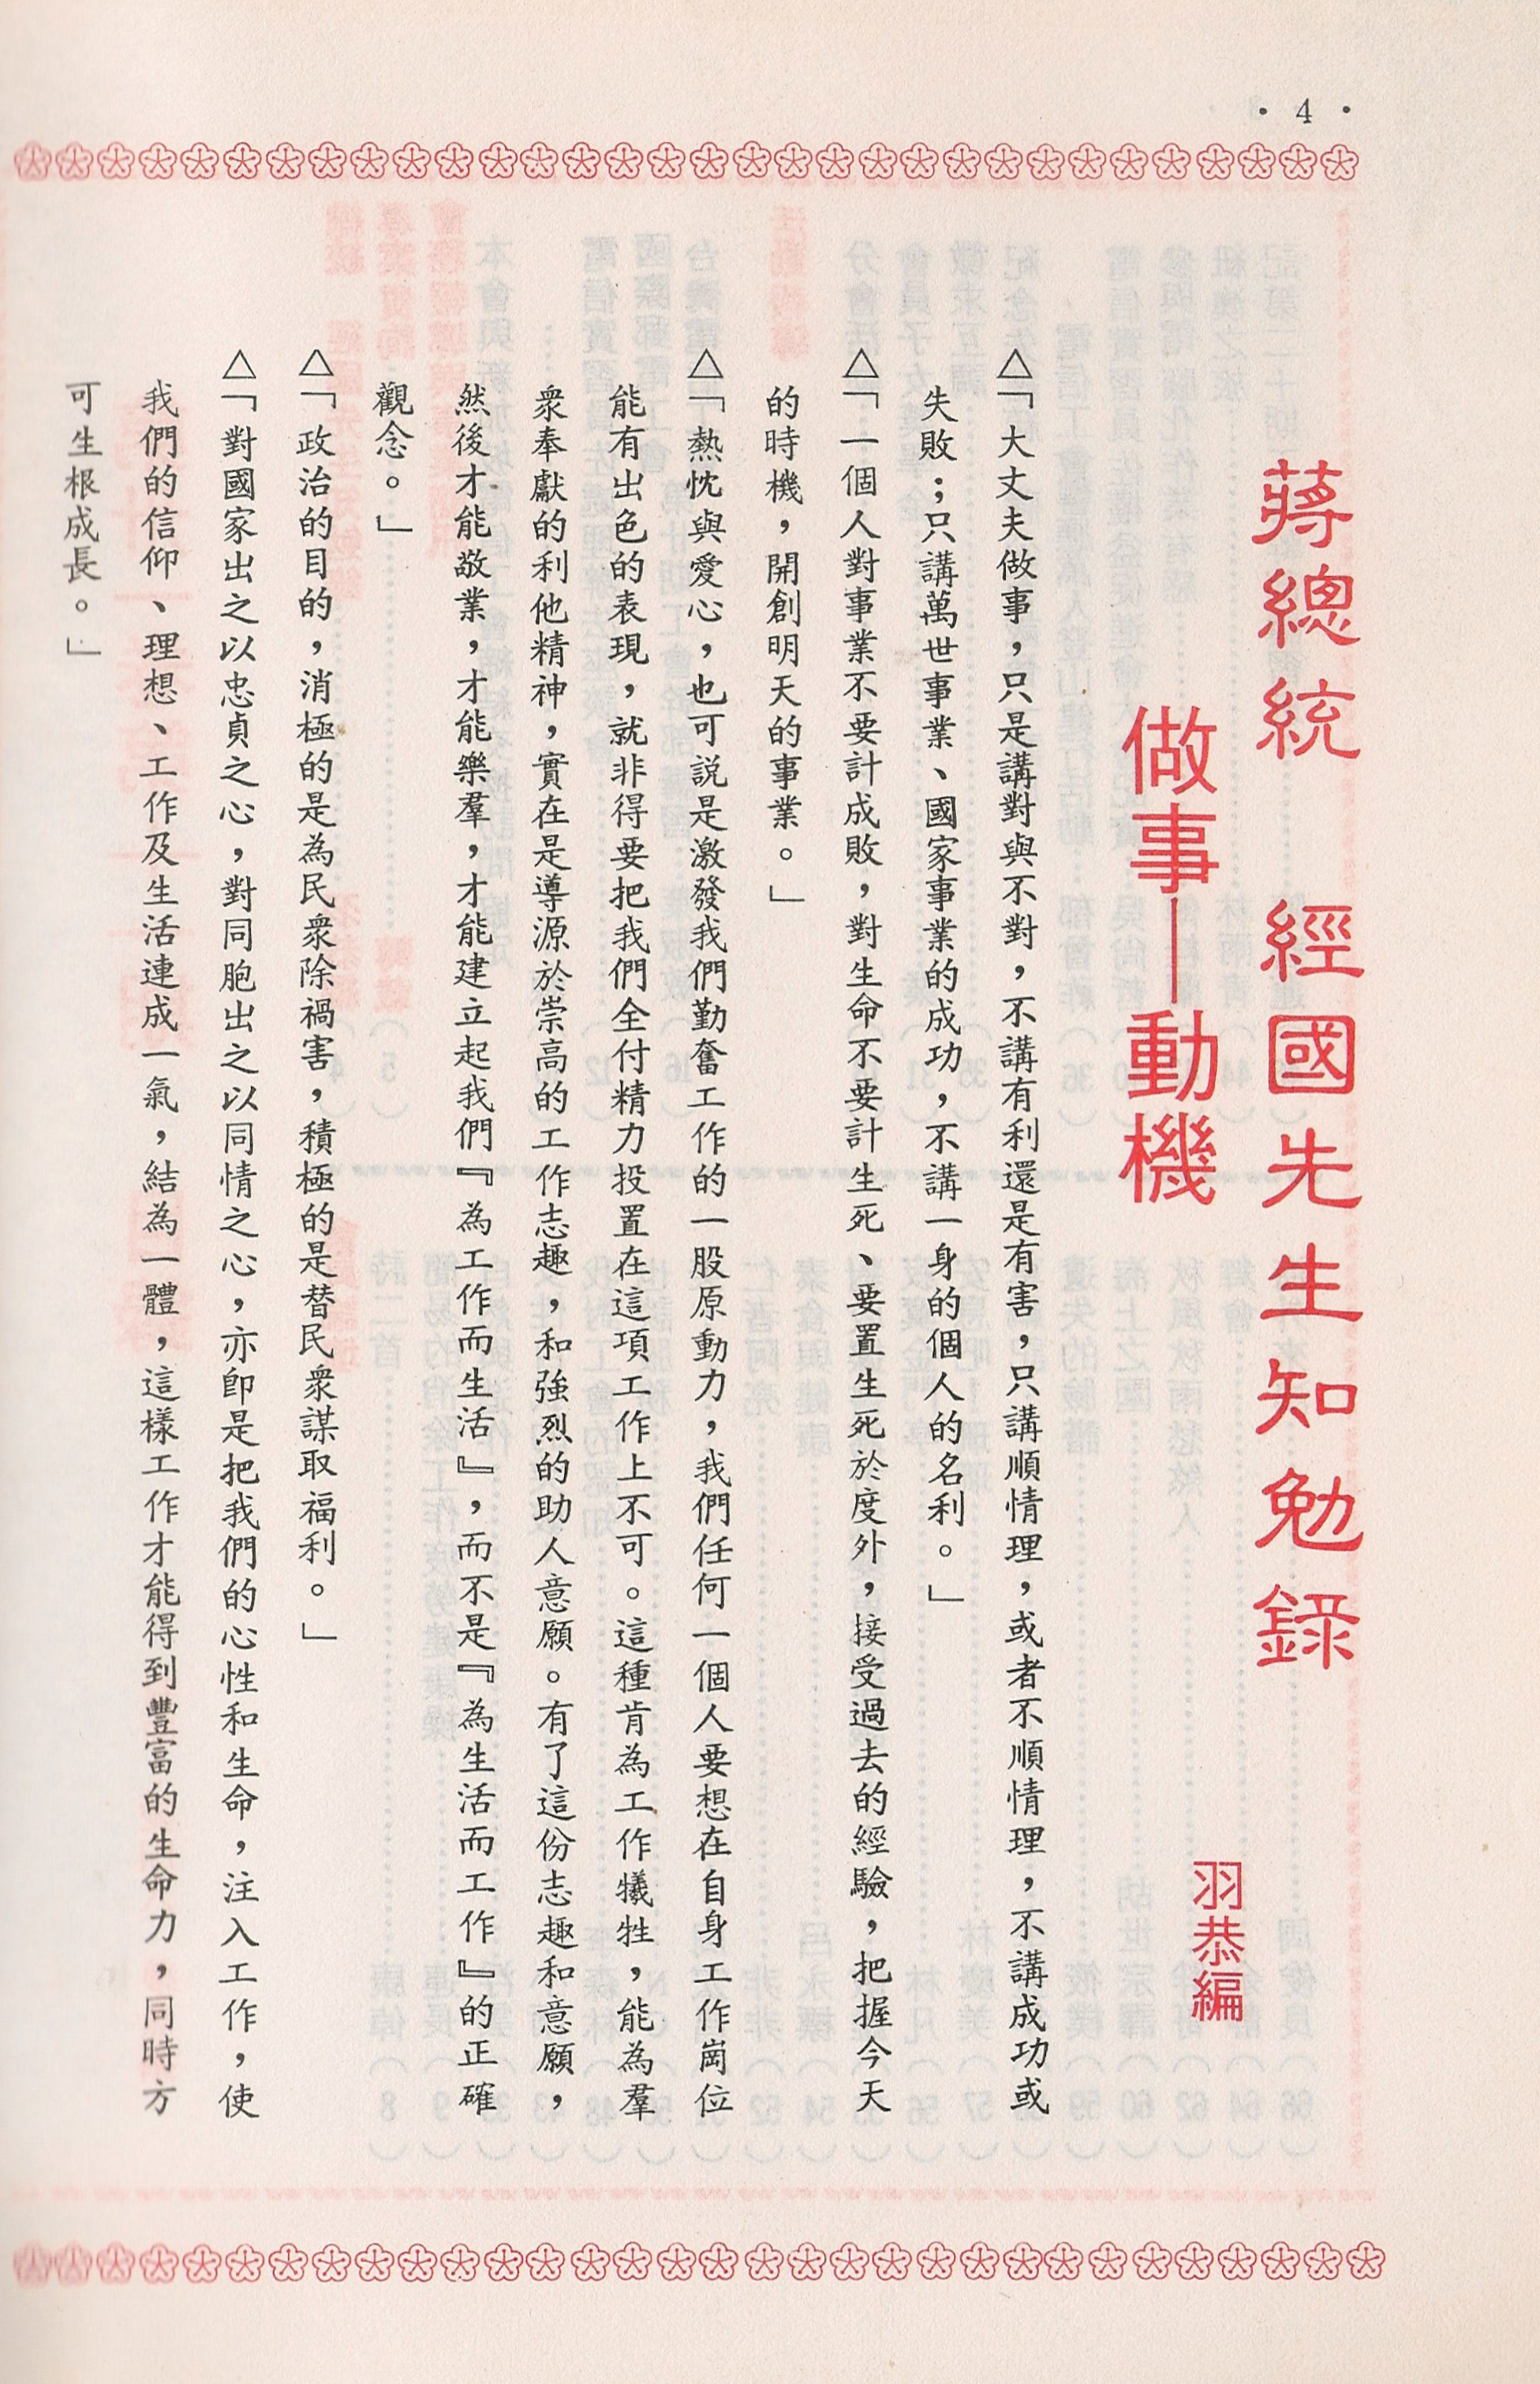 • 4 •
蔣總統 經國先生知勉錄
做事—動機
羽恭編
△「大丈夫做事，只是講對與不對，不講有利還是有害，只講順情理，或者不順情理，不講成功或
失敗；只講萬世事業、國家事業的成功，不講一身的個人的名利。」
△「一個人對事業不要計成敗，對生命不要計生死、要置生死於度外，接受過去的經驗，把握今天
的時機，開創明天的事業。」
△「熱忱與愛心，也可說是激發我們勤奮工作的一股原動力，我們任何一個人要想在自身工作崗位
能有出色的表現，就非得要把我們全付精力投置在這項工作上不可。這種肯為工作犧牲，能為羣
衆奉獻的利他精神，實在是導源於崇高的工作志趣，和強烈的助人意願。有了這份志趣和意願，
然後才能敬業，才能樂羣，才能建立起我們『為工作而生活』，而不是『為生活而工作』的正確
觀念。」
△「政治的目的，消極的是為民衆除禍害，積極的是替民衆謀取福利。」
△「對國家出之以忠貞之心，對同胞出之以同情之心，亦卽是把我們的心性和生命，注入工作，使
我們的信仰、理想、工作及生活連成一氣，結為一體，這樣工作才能得到豐富的生命力，同時方
可生根成長。」